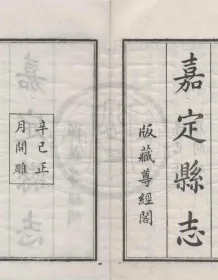 嘉定縣志
版藏尊經閣
辛巳正
月開雕